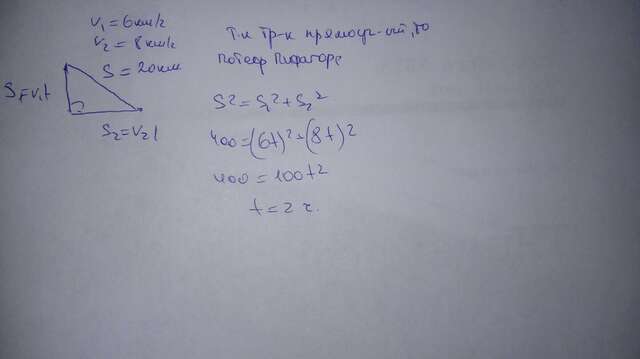 V₁ = 6км/ч
V₂ = 8км/ч
S = 20км
S₁=V₁t
S₂=V₂t
Т.к тр-к прямоуг-ый, то
по теор Пифагора
S²=S₁²+S₂²
400=(6t)²+(8t)²
400=100t²
t=2 ч.